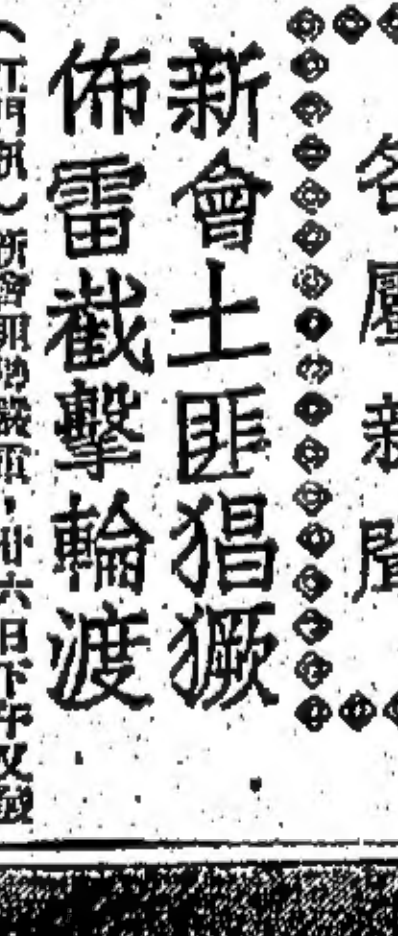 各屬新聞
新會土匪猖獗
佈雷截擊輪渡
(江門訊)新會
六日下午又